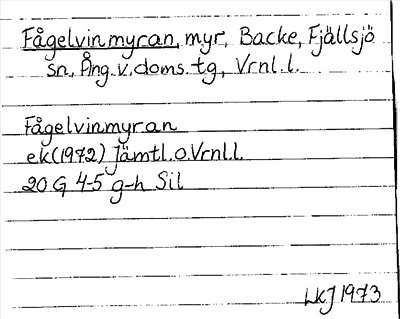 Fågelvinmyran, myr, Backe, Fjällsjö
sn, Ång.v.doms.tg, Vrnl.l.
Fågelvinmyran
ek(1972) Jämtl.o.Vrnl.l.
20 G 4-5 g-h Sil
LKJ 1973